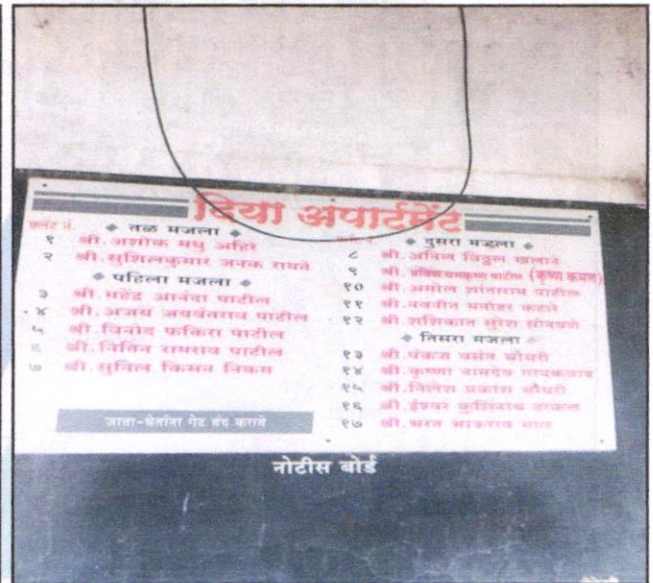 दिया अपार्टमेंट
फ्लॅट नं.
◆ तळ मजला ◆
१ श्री.अशोक मधु अहिरे
२ श्री.सुशिलकुमार जनक रायते
◆ पहिला मजला ◆
३ श्री.महेंद्र आनंदा पाटील
४ श्री.अजय जयवंतराव पाटील
५ श्री.विनोद फकिरा पाटील
६ श्री.नितिन रामराव पाटील
७ श्री.सुनिल किसन निकम
जाता-येतांना गेट बंद करावे
◆ दुसरा मजला ◆
८ श्री.अनिल विठ्ठल खलाने
९ श्री. पाटील (कृष्णा कमल)
१० श्री.अमोल शांताराम पाटील
११ श्री. मनोहर कटारे
१२ श्री.शशिकांत सुरेश सोनवणे
◆ तिसरा मजला ◆
१३ श्री.पंकज वसंत चौधरी
१४ श्री.कृष्णा वामदेव गायकवाड
१५ श्री.निलेश प्रकाश चौधरी
१६ श्री.ईश्वर
१७ श्री.भरत भाऊराव
नोटीस बोर्ड